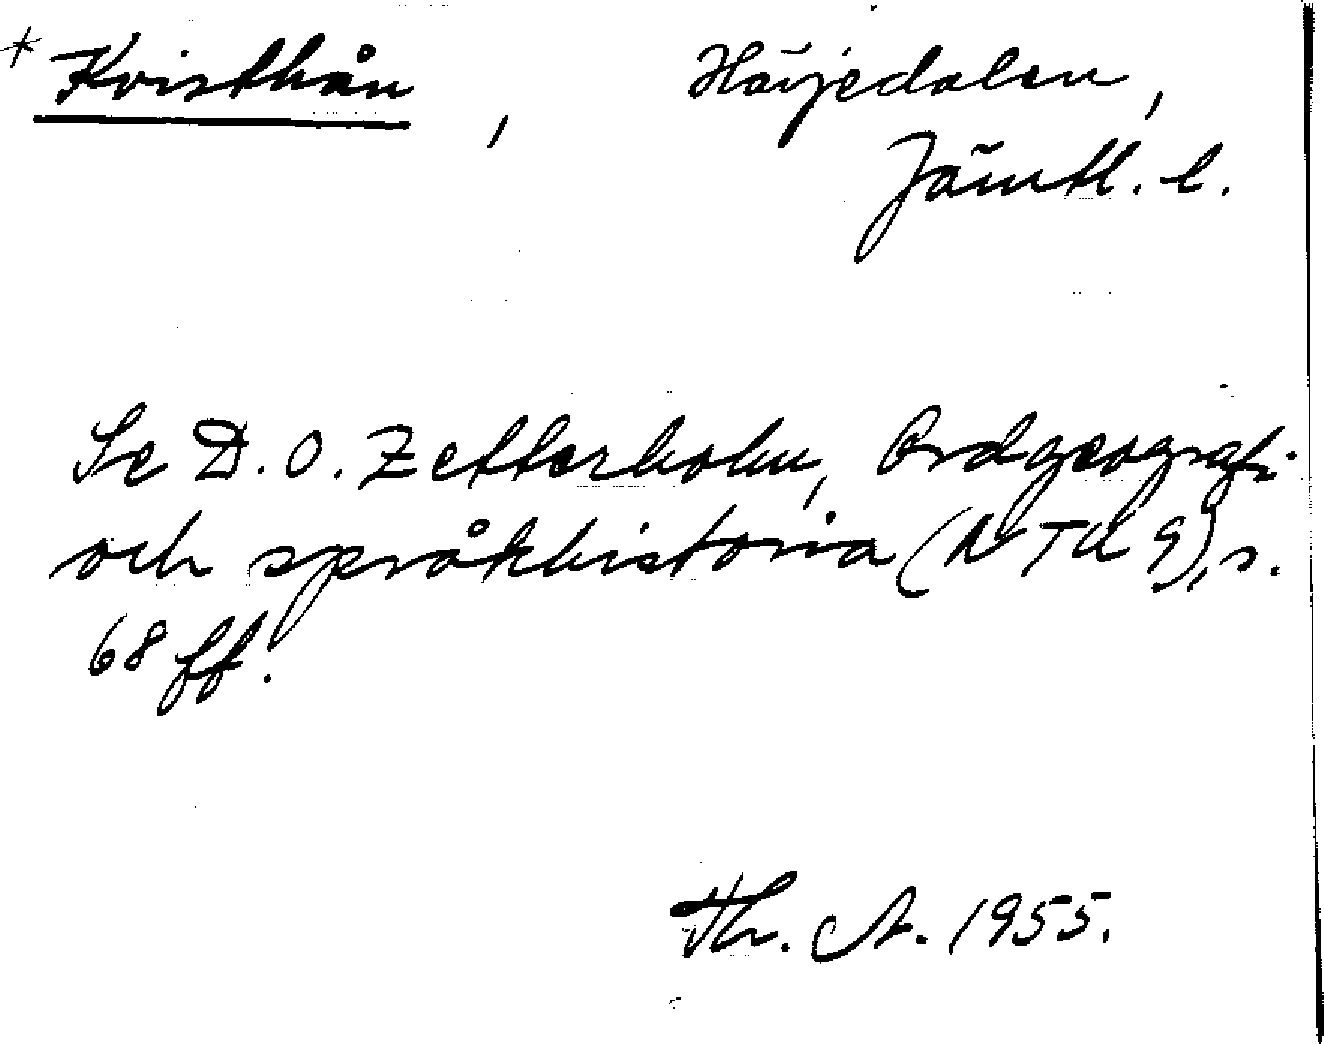 * Kvisthån, Härjedalen,
Jämtl. l.
Se D. O. Zetterholm, Ordgeografi
och språkhistoria (NTU 9), s.
68 ff.
Th. A. 1955.